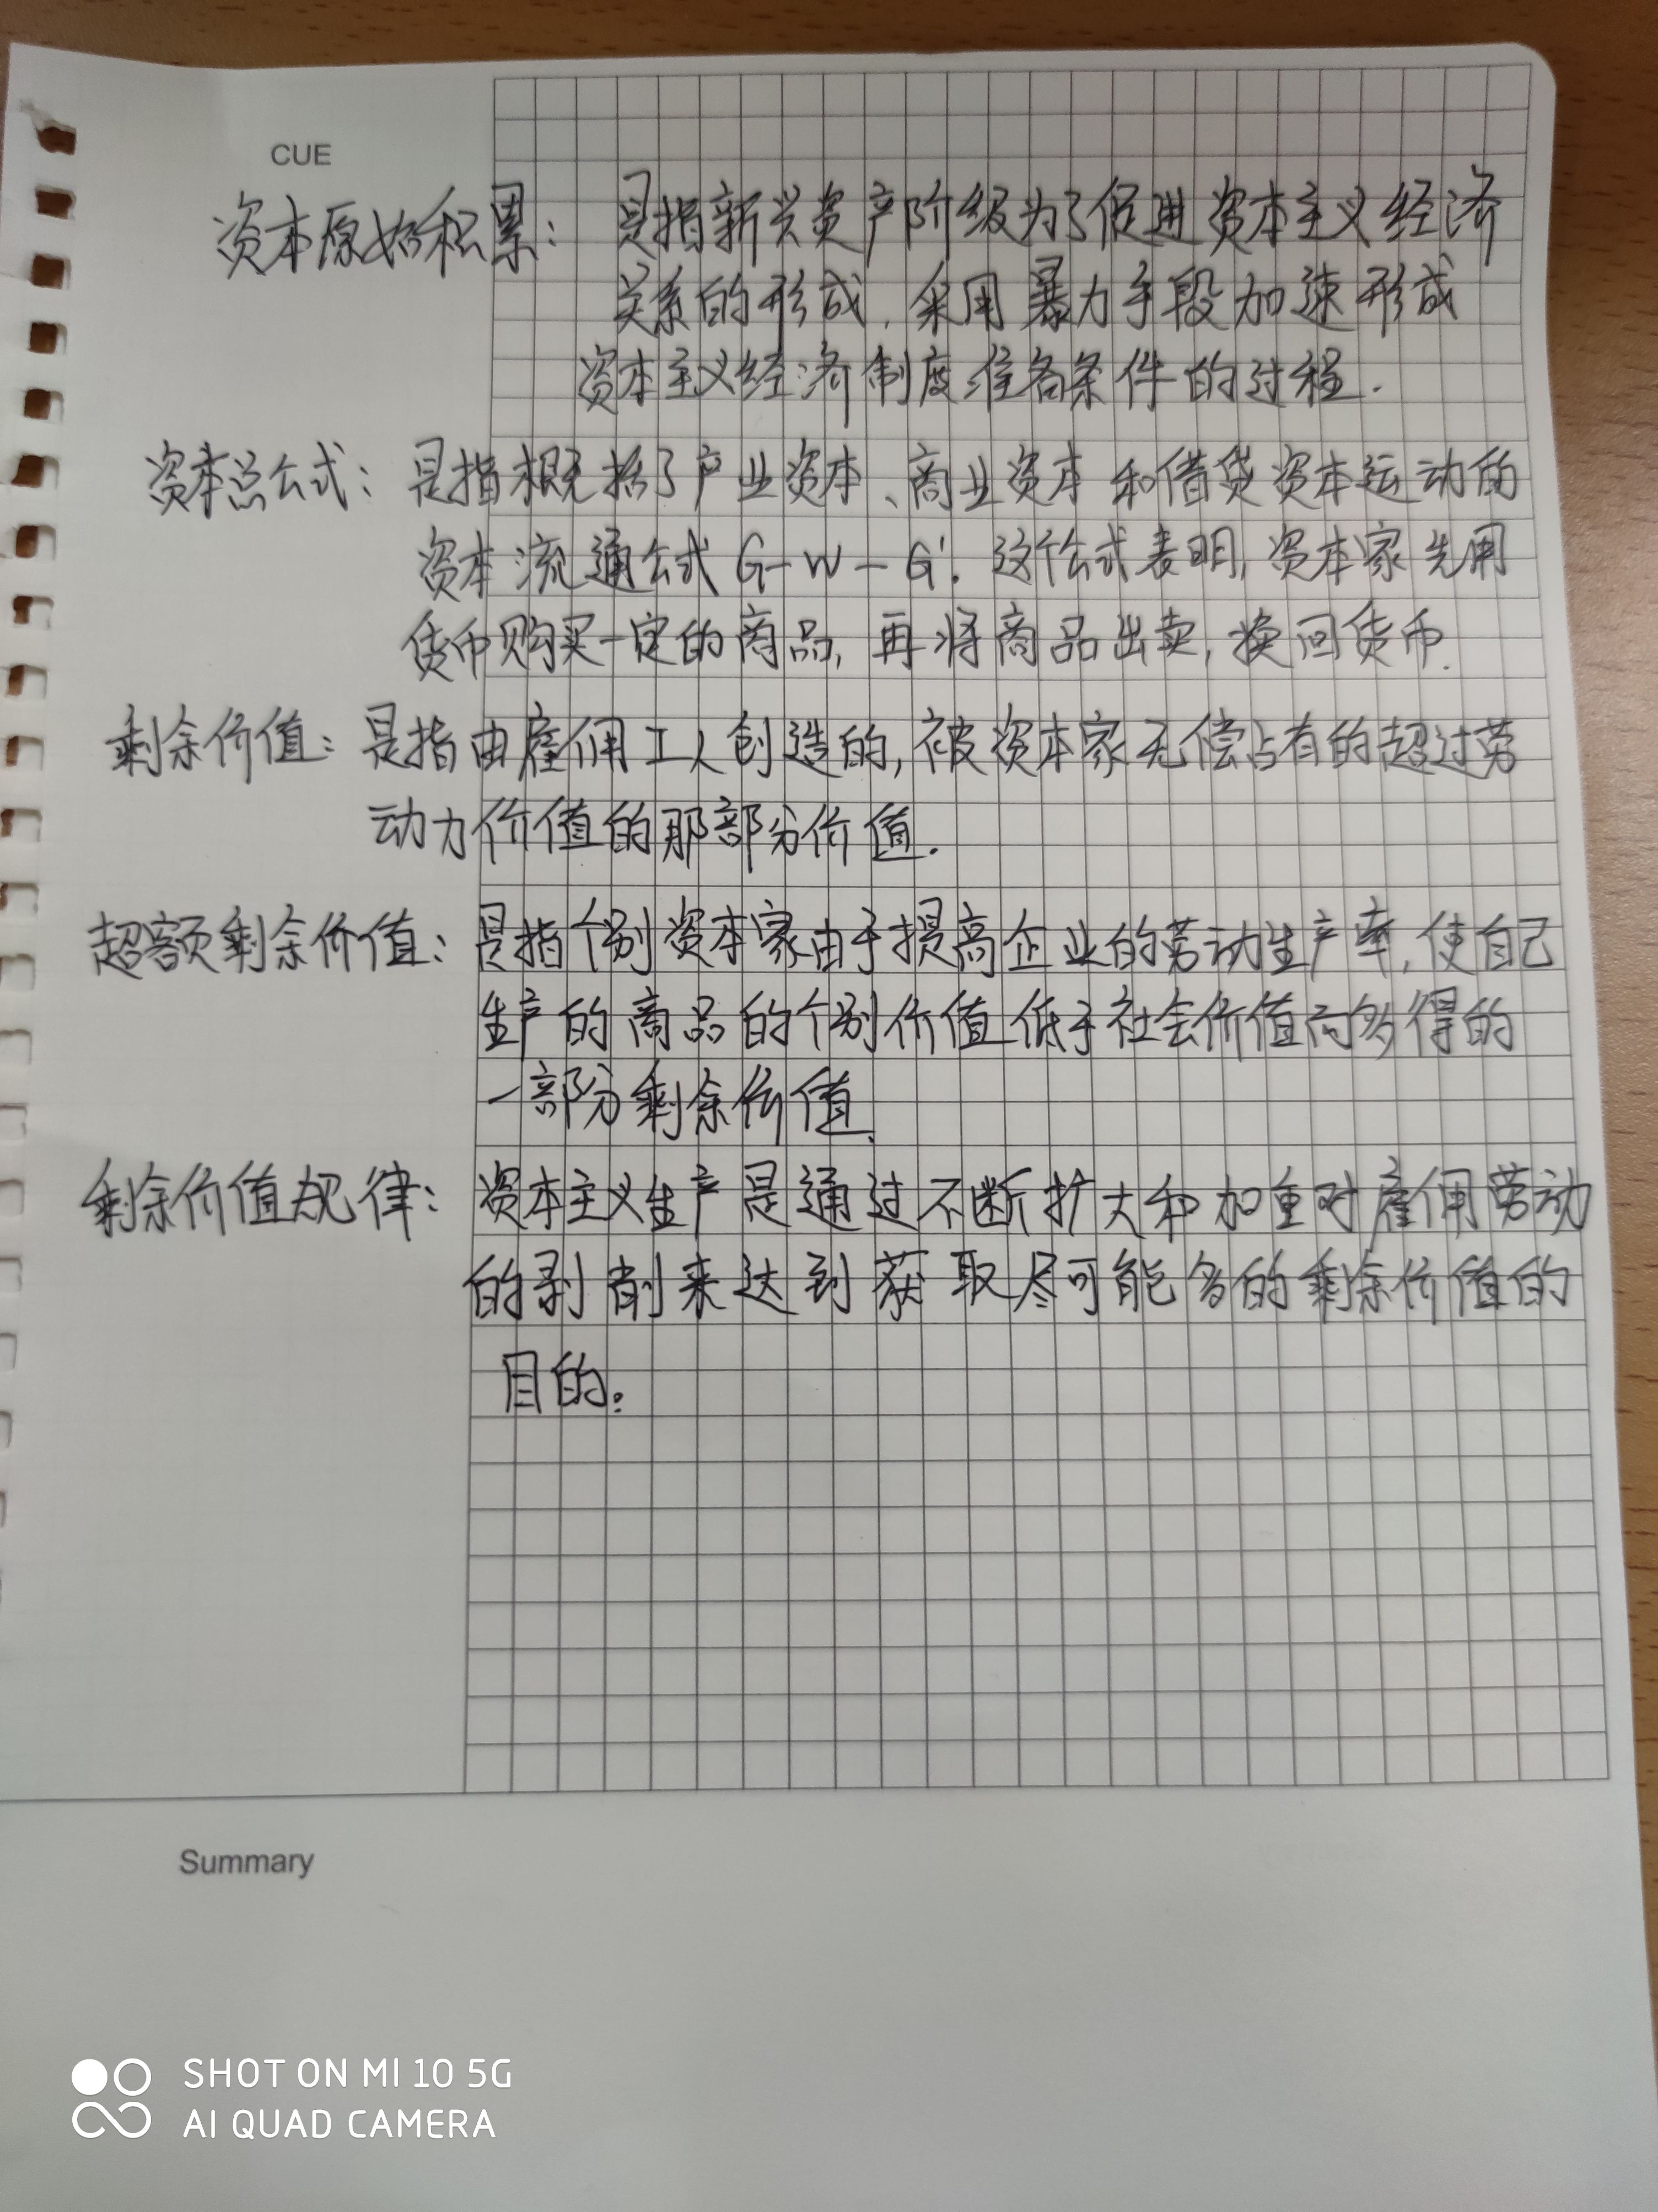 CUE
资本原始积累： 是指新兴资产阶级为了促进资本主义经济
关系的形成，采用暴力手段加速形成
资本主义经济制度准备条件的过程.
资本总公式：是指概括了产业资本、商业资本和借贷资本运动的
资本流通公式 G-W-G'. 这个公式表明,资本家先用
货币购买一定的商品, 再将商品出卖, 换回货币.
剩余价值：是指由雇佣工人创造的, 被资本家无偿占有的超过劳
动力价值的那部分价值.
超额剩余价值：是指个别资本家由于提高企业的劳动生产率, 使自己
生产的商品的个别价值低于社会价值而多得的
一部分剩余价值.
剩余价值规律：资本主义生产是通过不断扩大和加重对雇佣劳动
的剥削来达到获取尽可能多的剩余价值的
目的。
Summary
SHOT ON MI 10 5G
AI QUAD CAMERA